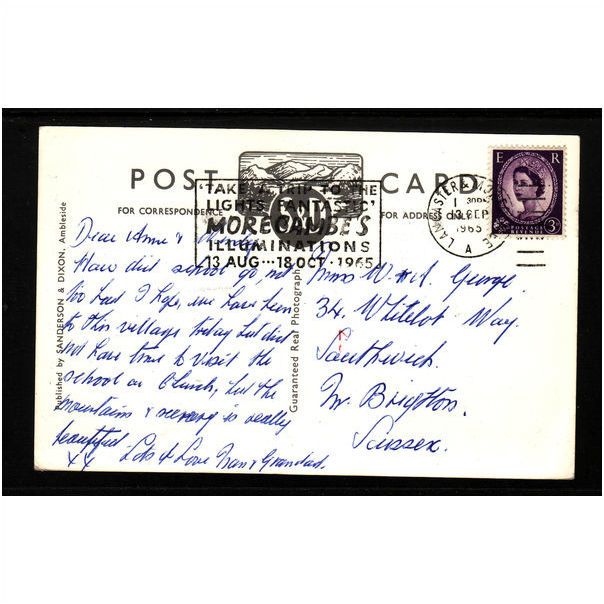 POST CARD
FOR CORRESPONDENCE
FOR ADDRESS ONLY
'TAKE A TRIP TO THE
LIGHTS FANTASTIC'
MORECAMBE'S
ILLUMINATIONS
13 AUG··· 18 OCT · 1965
S&D
E R
POSTAGE
REVENUE
3D
LANCASTER & MORECAMBE
13 SEP
1965
A
Published by SANDERSON & DIXON, Ambleside
Guaranteed Real Photograph
Dear Anne &
How did school go, not
too bad I hope, we have been
to this village today but did
not have time to visit the
school or Church, but the
mountains & scenery is really
beautiful. Lots of Love Nan & Grandad.
xx
Miss W. & A. George.
34. Whitelot Way.
Southwick.
Nr. Brighton.
Sussex.